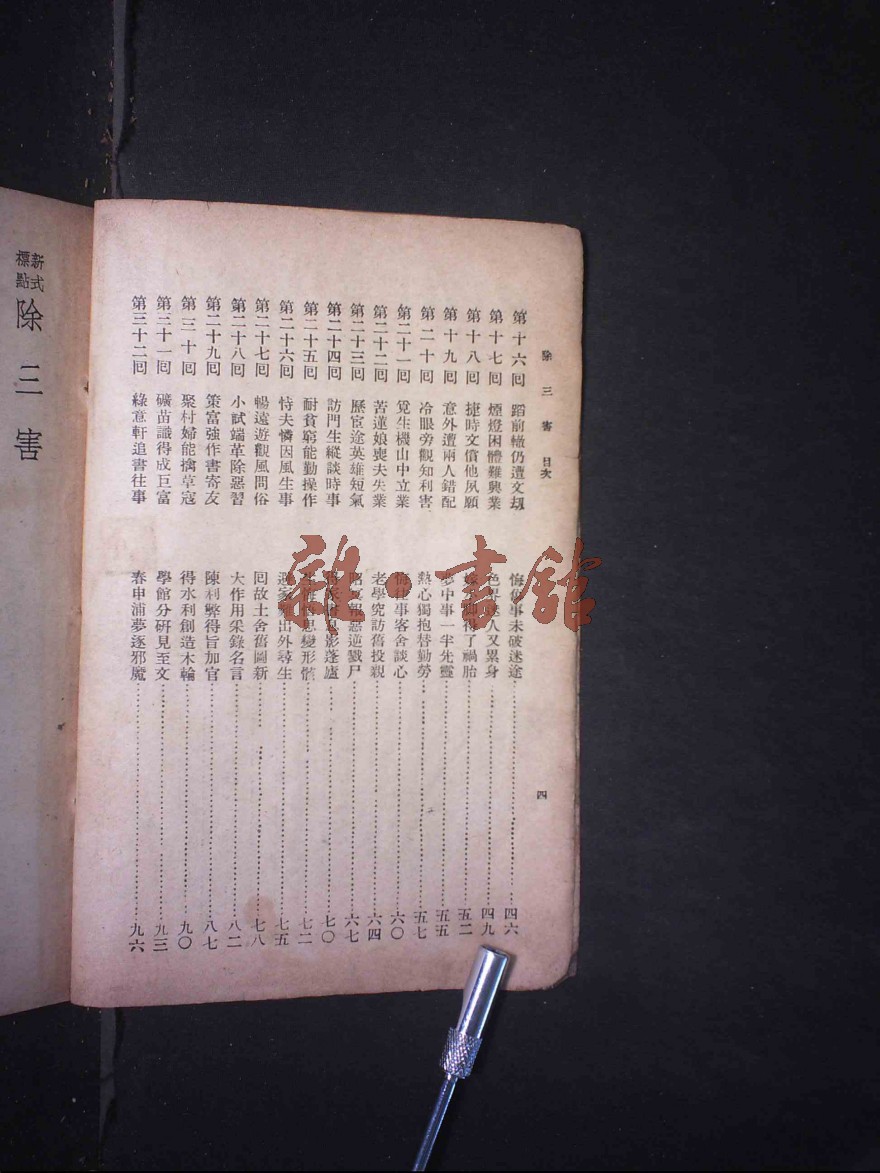 除三害 目次
第十六囘 蹈前轍仍遭文刼 悔舊事未破迷途 四六
第十七囘 煙燈困體難興業 色 人又累身 四九
第十八囘 捷時文償他夙願 得了禍胎 五二
第十九囘 意外遭兩人錯配 夢中事一半先靈 五五
第二十囘 冷眼旁觀知利害 熱心獨抱替勤勞 五七
第二十一囘 覓生機山中立業 事客舍談心 六〇
第二十二囘 苦蓮娘喪夫失業 老學究訪舊投親 六四
第二十三囘 歷宦途英雄短氣 報惡逆戮尸 六七
第二十四囘 訪門生縱談時事 影蓬廬 七〇
第二十五囘 耐貧窮能勤操作 思變形骸 七二
第二十六囘 恃夫憐因風生事 家難出外尋生 七五
第二十七囘 暢遠遊觀風問俗 囘故土舍舊圖新 七八
第二十八囘 小試端革除惡習 大作用采錄名言 八二
第二十九囘 策富強作書寄友 陳利弊得旨加官 八七
第三十囘 聚村婦能擒草寇 得水利創造木輪 九〇
第三十一囘 礦苗識得成巨富 學館分研見至文 九三
第三十二囘 綠意軒追書往事 春申浦夢逐邪魔 九六
四
新式標點 除三害
雜·書館